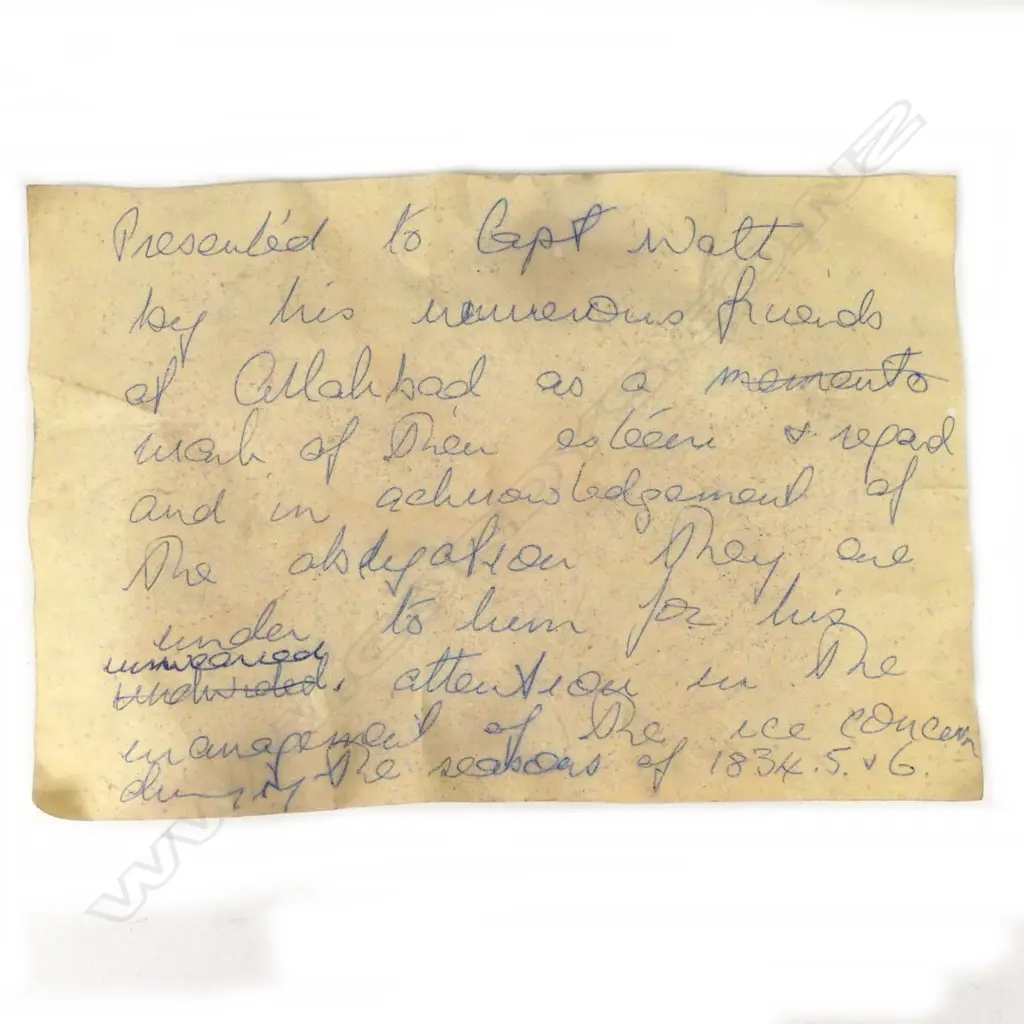 Presented to Capt Watt
by his numerous friends
at Allahbad as a ~~memento~~
mark of their esteem & regard
and in acknowledgement of
the obligation they are
under to him for his
unwearied
attention in the
management of the ice concern
during the seasons of 1834.5.&6.